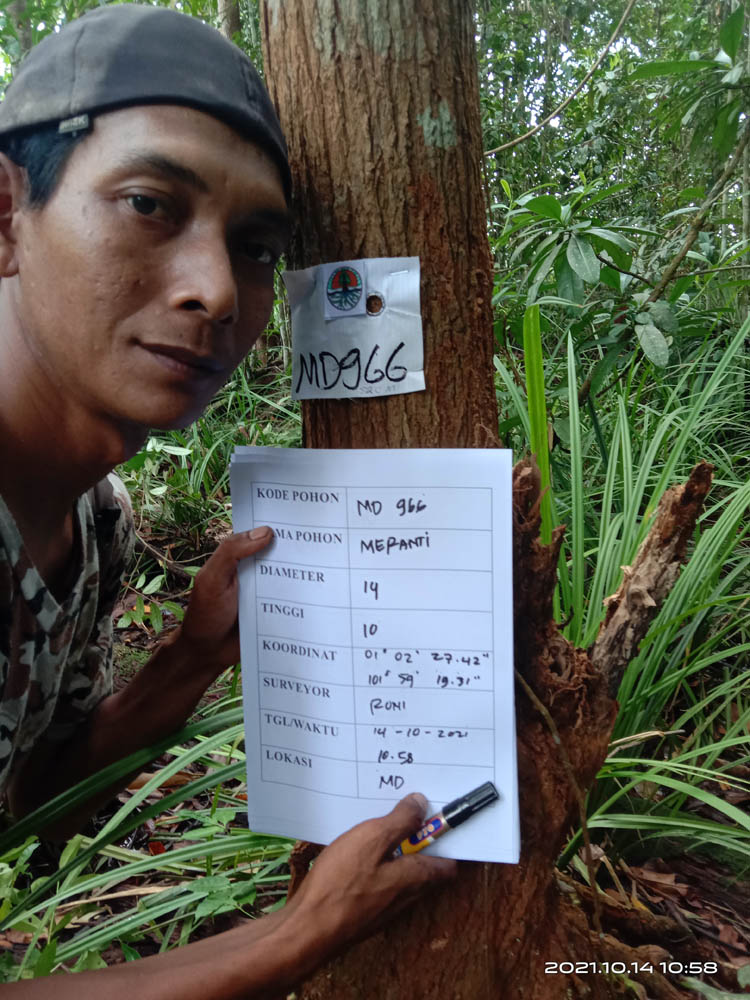 MD966
KODE POHON MD 966
AMA POHON MERANTI
DIAMETER 14
TINGGI 10
KOORDINAT 01° 02' 27.42"
101° 59' 19.31"
SURVEYOR RONI
TGL/WAKTU 14-10-2021
10.58
LOKASI MD
2021.10.14 10:58